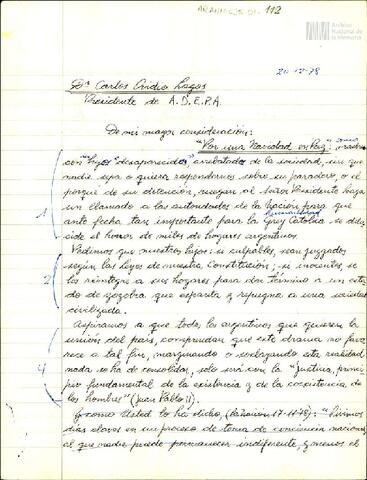 ARAMNCJS 01- 112
Archivo
Nacional de
la Memoria
20-12-78
Dr Carlos Ovidio Lagos
Presidente de A.D.E.P.A.
De mi mayor consideración:
"Por una Navidad en Paz", como madres
con "hijos "desaparecidos" arrebatados de la sociedad, sin que
nadie sepa o quiera respondernos sobre su paradero, o el
porqué de su detención, ruegan al Señor Presidente haga
un llamado a las autoridades de la Nación para que
ante fecha tan importante para la Grey Católica se
side el horror de miles de hogares argentinos.
1
Pedimos que nuestros hijos: si culpables, sean juzgados
según las leyes de nuestra Constitución; si inocentes, se
los reintegre a sus hogares para dar término a un esta
do de zozobra que espanta y repugna a una sociedad
civilizada.
2
Aspiramos a que todos los argentinos que quieren la
unión del país, comprendan que este drama no favo
rece a tal fin, marginando o soslayando esta realidad
nada se ha de consolidar, sólo será con la "justicia, princi
pio fundamental de la existencia y de la coexistencia de
los hombres" (Juan Pablo II).
4
Y como Usted lo ha dicho, (La Nación 17-11-78): "Vivimos
días claves en un proceso de toma de conciencia nacional
al que nadie puede permanecer indiferente, y menos el